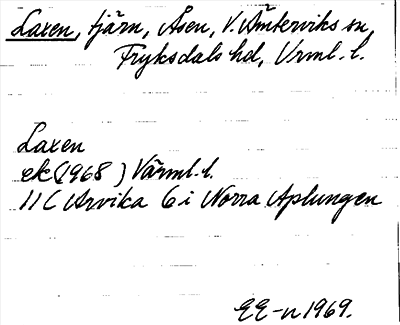 Laxen, tjärn, Åsen, V. Ämterviks sn,
Fryksdals hd, Vrml. l.
Laxen
ek (1968) Värml. l.
11C Arvika 6 i Norra Aplungen
EE-n 1969.